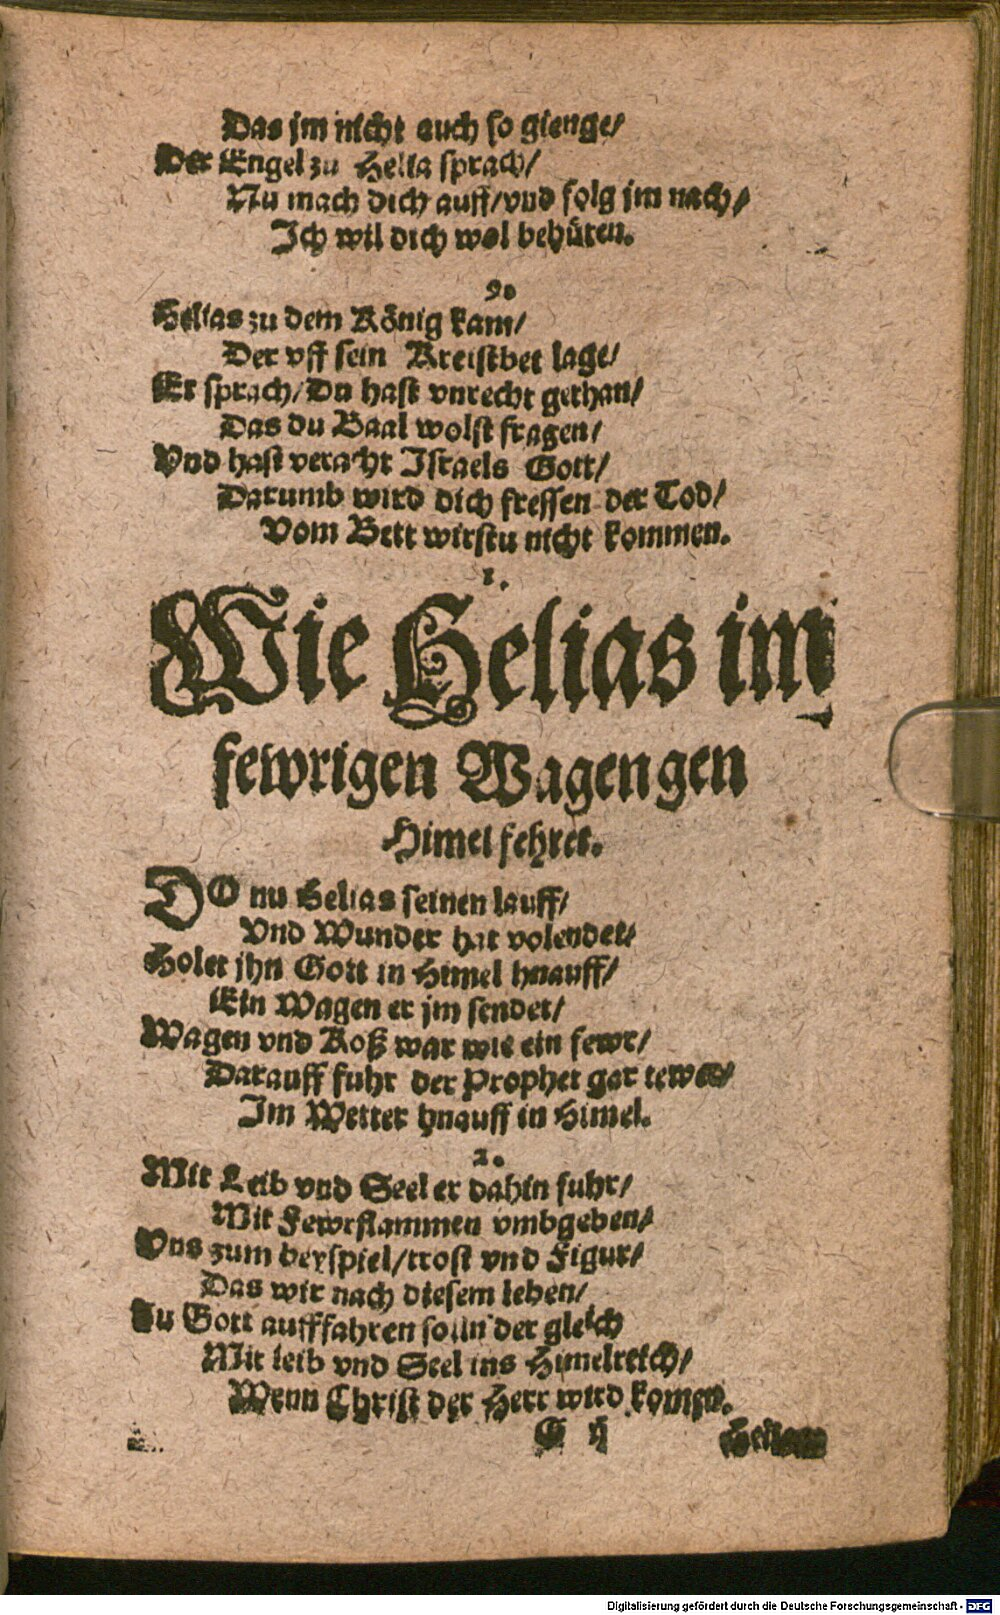 Das jm nicht auch so gienge/
Der Engel zu Helia sprach/
Nu mach dich auff/vnd folg jm nach/
Ich wil dich wol behüten.
9.
Helias zu dem König kam/
Der vff sein Kreistbet lage/
Er sprach/Du hast vnrecht gethan/
Das du Baal wolst fragen/
Vnd hast veracht Israels Gott/
Darumb wird dich fressen der Tod/
Vom Bett wirstu nicht kommen.
1.
Wie Helias im
fewrigen Wagen gen
Himel fehret.
DO nu Helias seinen lauff/
Vnd Wunder hat volendet/
Holet jhn Gott in Himel hnauff/
Ein Wagen er jm sendet/
Wagen vnd Roß war wie ein fewr/
Darauff fuhr der Prophet gar tewer/
Im Wetter hnauff in Himel.
2.
Mit Leib vnd Seel er dahin fuhr/
Mit Fewrflammen vmbgeben/
Vns zum beyspiel/trost vnd Figur/
Das wir nach diesem leben/
Zu Gott aufffahren solln der gleich
Mit leib vnd Seel ins Himelreich/
Wenn Christ der Herr wird komen.
G ij
Helias
Digitalisierung gefördert durch die Deutsche Forschungsgemeinschaft - DFG